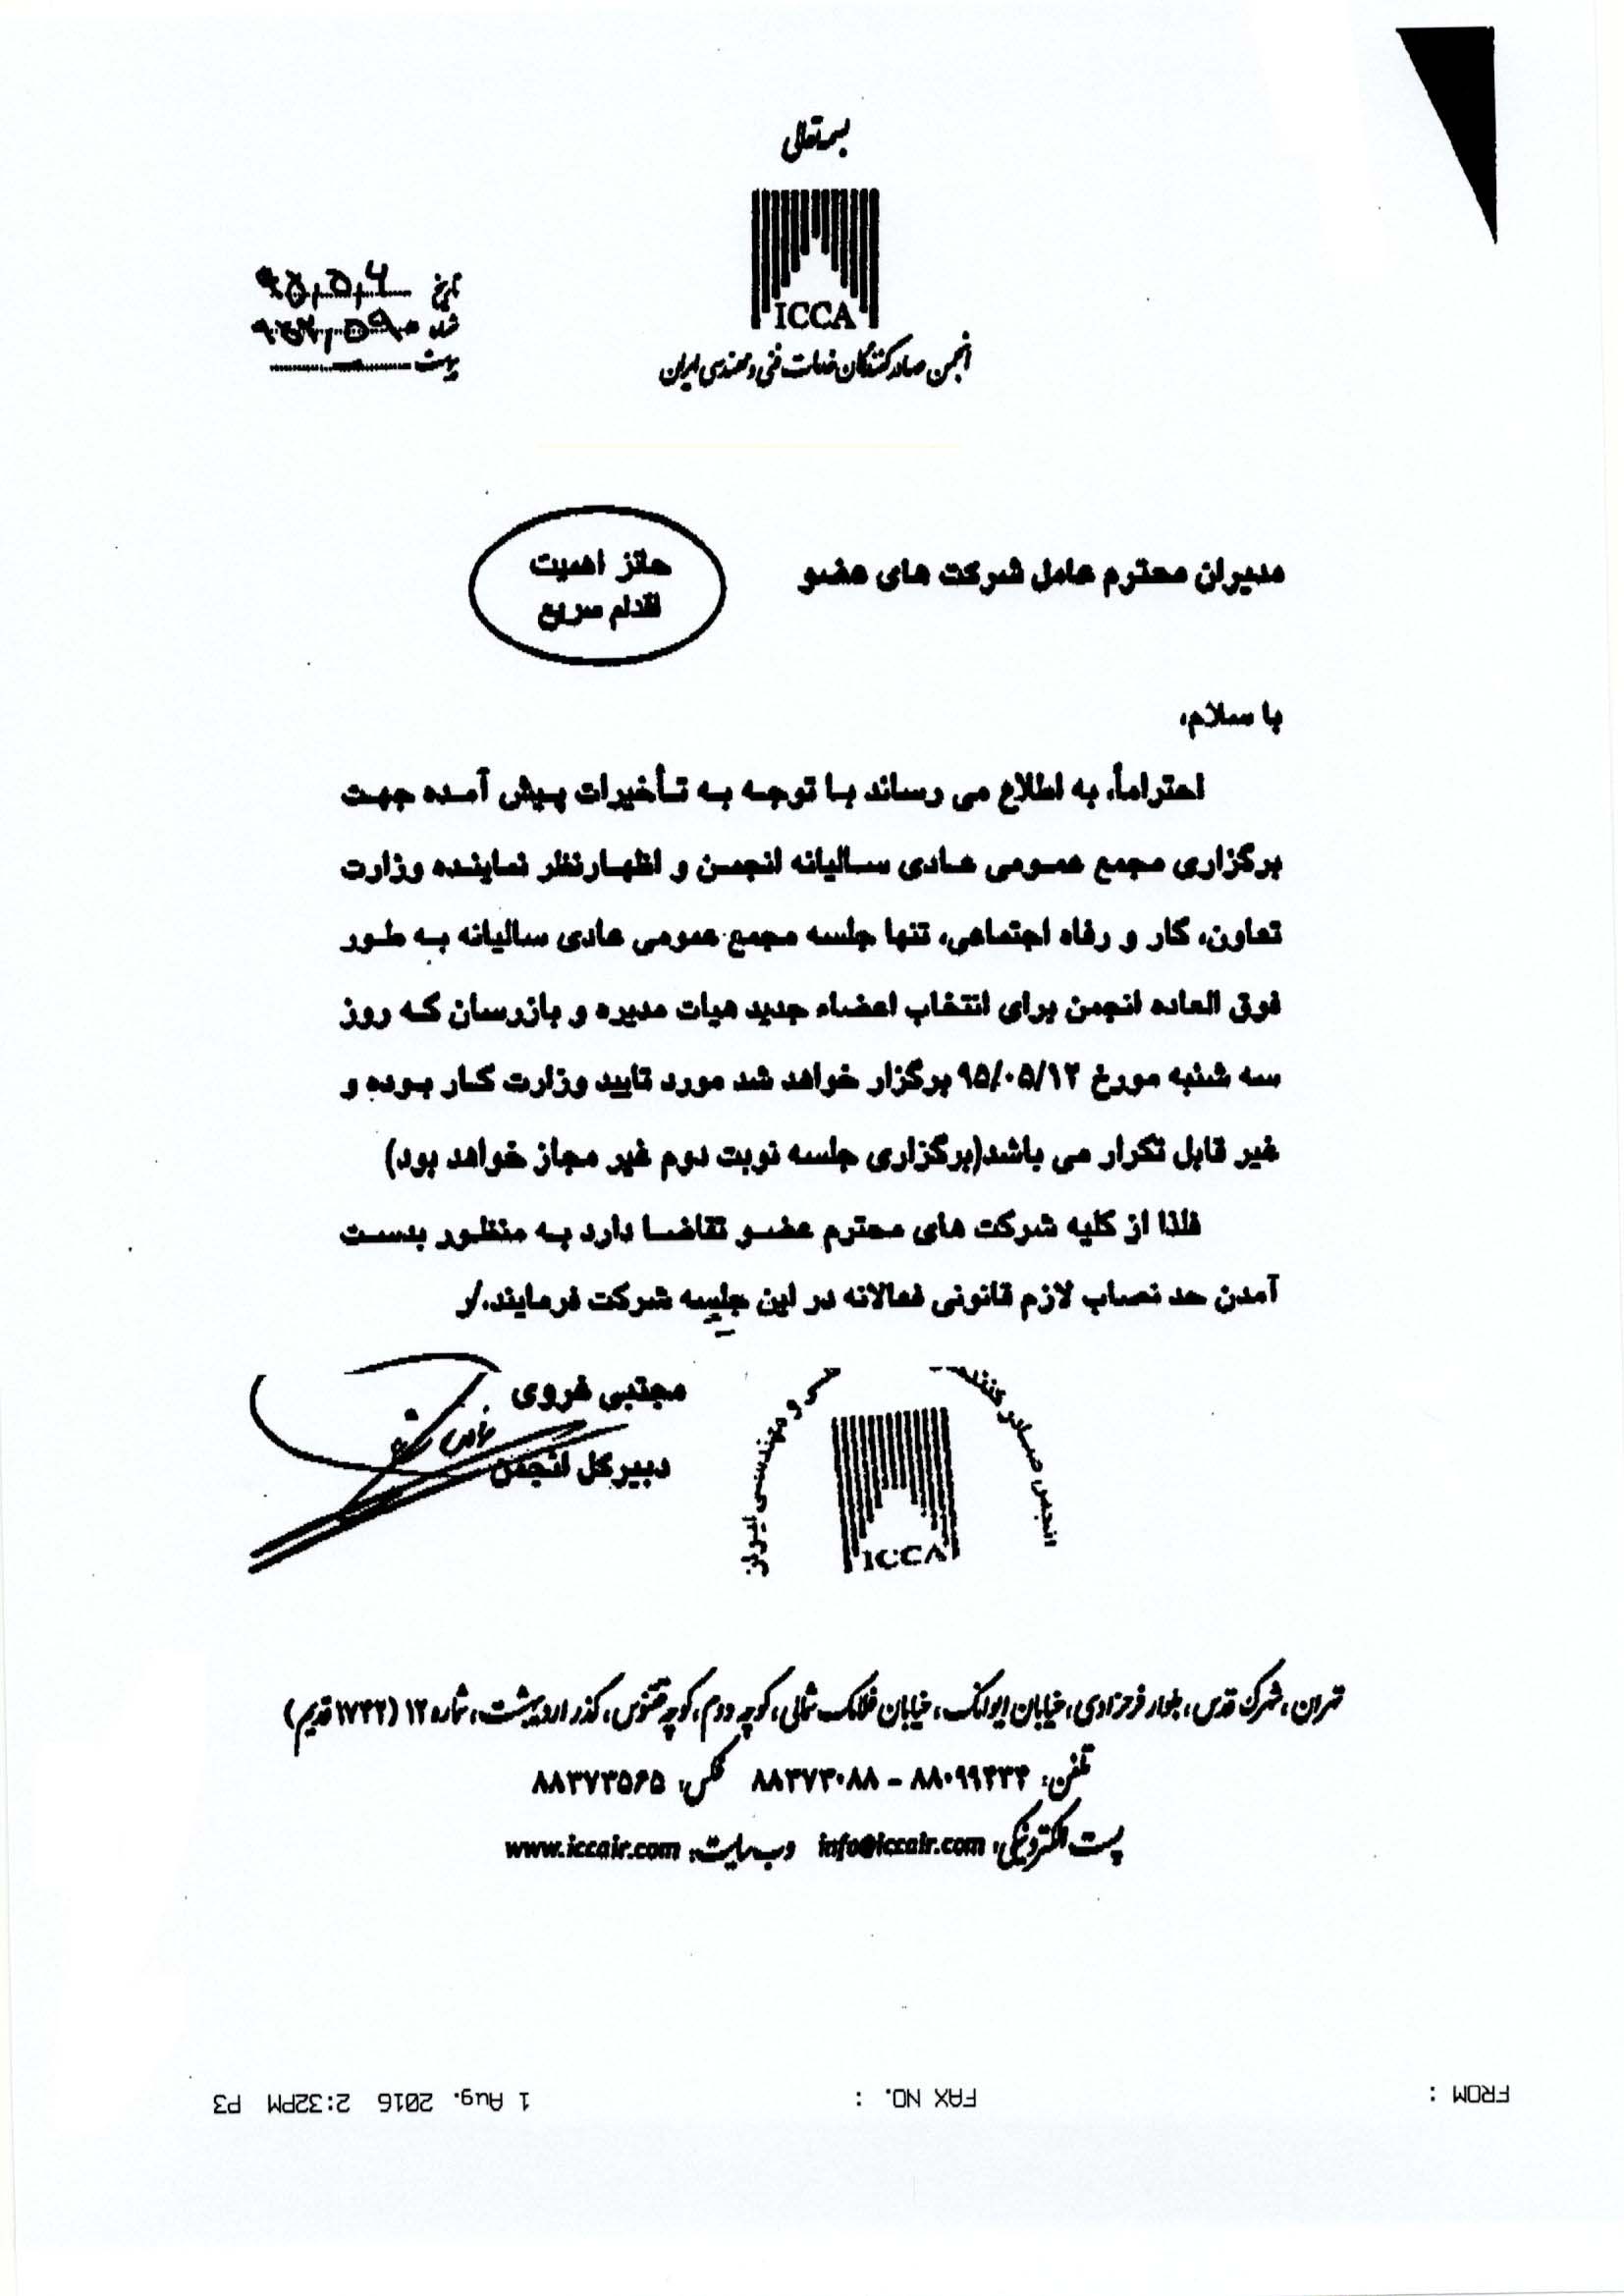 بسمه تعالی
ICCA
انجمن صادرکنندگان خدمات فنی و مهندسی ایران
تاریخ
شماره
پیوست
مدیران محترم عامل شرکت های عضو
حائز اهمیت
اقدام سریع
با سلام،
احتراماً، به اطلاع می رساند با توجه به تأخیرات پیش آمده جهت
برگزاری مجمع عمومی عادی سالیانه انجمن و اظهارنظر نماینده وزارت
تعاون، کار و رفاه اجتماعی، تنها جلسه مجمع عمومی عادی سالیانه به طور
فوق العاده انجمن برای انتخاب اعضاء جدید هیات مدیره و بازرسان که روز
سه شنبه مورخ ۹۵/۰۵/۱۲ برگزار خواهد شد مورد تایید وزارت کار بوده و
غیر قابل تکرار می باشد(برگزاری جلسه نوبت دوم غیر مجاز خواهد بود)
فلذا از کلیه شرکت های محترم عضو تقاضا دارد به منظور بدست
آمدن حد نصاب لازم قانونی فعالانه در این جلسه شرکت فرمایند./ر
مجتبی فروی
دبیرکل انجمن
انجمن صادرکنندگان و مهندسی ایران
ICCA
تهران، شهرک قدس، بلوار فرحزادی، خیابان ایوانک، خیابان فلامک شمالی، کوچه دوم، کوچه ققنوس، گذر اردیبهشت، شماره ۱۲ (۱۷۳۲ قدیم)
تلفن: ۸۸۰۹۹۴۳۴ - ۸۸۳۷۳۰۸۸ فکس: ۸۸۳۷۳۵۶۵
پست الکترونیکی: info@iccair.com وب سایت: www.iccair.com
FROM : FAX NO. : 1 Aug. 2016 2:32PM P3